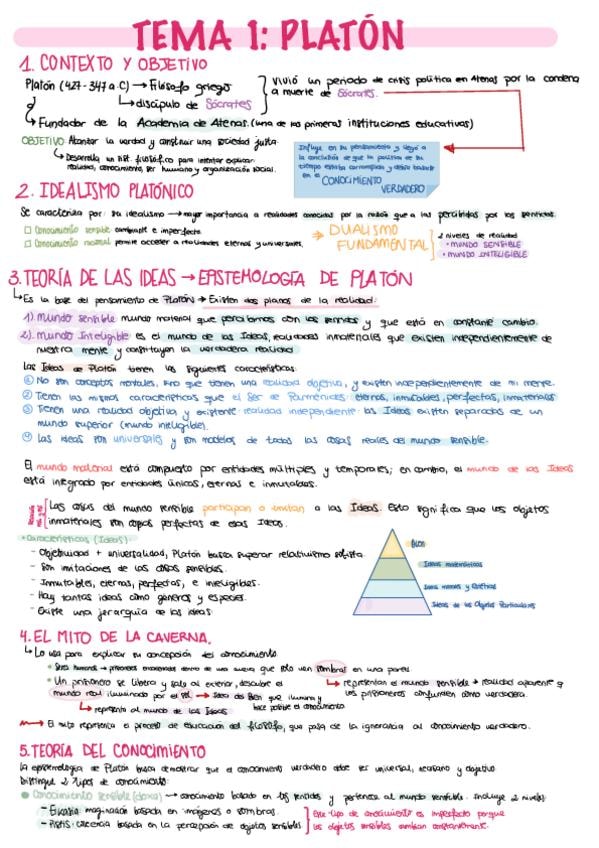 TEMA 1: PLATÓN
1. CONTEXTO Y OBJETIVO
Platón (427-347 a.C) → Filósofo griego
discípulo de Sócrates
Vivió un periodo de crisis política en Atenas por la condena
a muerte de Sócrates.
Fundador de la Academia de Atenas. (una de las primeras instituciones educativas)
OBJETIVO: Alcanzar la verdad y construir una sociedad justa
Desarrolla un sist. filosófico para intentar explicar
realidad, conocimiento, ser humano y organización social.
Influye en su pensamiento y llegó a
la conclusión de que la política de su
tiempo estaba corrompida y debía basarse
en el CONOCIMIENTO
VERDADERO
2. IDEALISMO PLATÓNICO
Se caracteriza por: su idealismo → mayor importancia a realidades conocidas por la razón que a las percibidas por los sentidos.
Conocimiento sensible cambiante e imperfecto.
Conocimiento racional permite acceder a realidades eternas y universales.
DUALISMO
FUNDAMENTAL
2 niveles de realidad
• MUNDO SENSIBLE
• MUNDO INTELIGIBLE
3. TEORÍA DE LAS IDEAS → EPISTEMOLOGÍA DE PLATÓN
Es la base del pensamiento de PLATÓN → Existen dos planos de la realidad:
1). Mundo sensible mundo material que percibimos con los sentidos y que está en constante cambio.
2). Mundo Inteligible es el mundo de las Ideas, realidades inmateriales que existen independientemente de
nuestra mente y constituyen la verdadera realidad
Las Ideas de Platón tienen las siguientes características:
① No son conceptos mentales, sino que tienen una realidad objetiva, y existen independientemente de mi mente.
② Tienen las mismas características que el Ser de Parménides: eternas, inmutables, perfectas, inmateriales
③ Tienen una realidad objetiva y existente: realidad independiente: las Ideas existen separadas de un
mundo superior (mundo inteligible).
④ Las ideas son universales y son modelos de todas las cosas reales del mundo sensible.
El mundo material está compuesto por entidades múltiples y temporales; en cambio, el mundo de las Ideas
está integrado por entidades únicas, eternas e inmutables.
Las cosas del mundo sensible participan o imitan a las Ideas. Esto significa que los objetos
inmateriales son copias perfectas de esas Ideas.
• Características (Ideas):
- Objetividad + universalidad, Platón busca superar relativismo sofista.
- Son imitaciones de las cosas sensibles.
- Inmutables, eternas, perfectas, e inteligibles.
- Hay tantas ideas como géneros y especies.
- Existe una jerarquía de las ideas
BIEN
Ideas matemáticas
Ideas morales y Estéticas
Ideas de los Objetos Particulares
4. EL MITO DE LA CAVERNA.
Lo usa para explicar su concepción del conocimiento.
Seres humanos → prisioneros encadenados dentro de una cueva que solo ven sombras en una pared.
Un prisionero se libera y sale al exterior, descubre el
mundo real iluminado por el sol → Idea de Bien que ilumina y
hace posible el conocimiento
representan el mundo sensible → realidad aparente q
los prisioneros confunden como verdadera.
representa al mundo de las Ideas
El mito representa el proceso de educación del filósofo, que pasa de la ignorancia al conocimiento verdadero.
5. TEORÍA DEL CONOCIMIENTO
La epistemología de Platón busca demostrar que el conocimiento verdadero debe ser universal, necesario y objetivo
Distingue 2 tipos de conocimiento:
Conocimiento sensible (doxa) → conocimiento basado en los sentidos y pertenece al mundo sensible. Incluye 2 niveles:
- Eikasia: imaginación basada en imágenes o sombras.
- Pistis: creencia basada en la percepción de objetos sensibles
Este tipo de conocimiento es imperfecto porque
los objetos sensibles cambian constantemente.